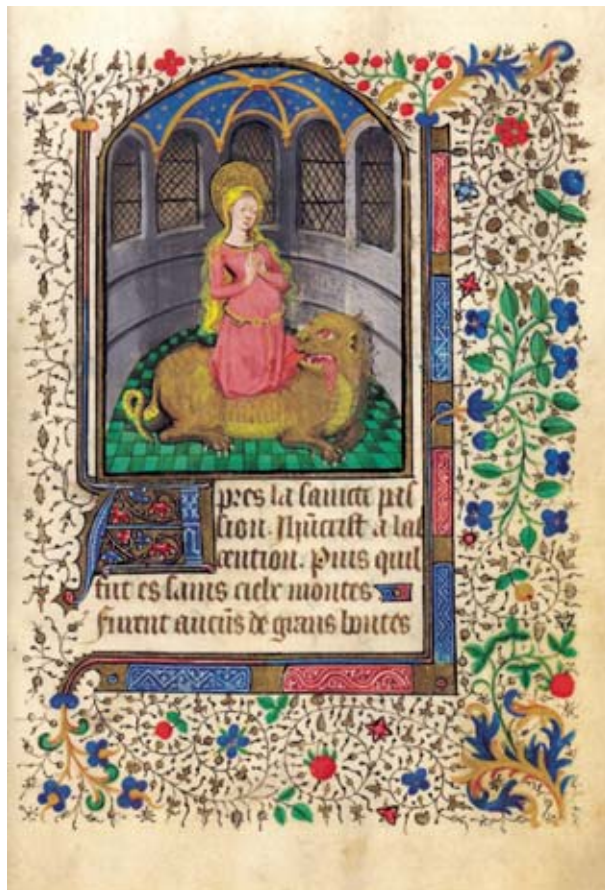 Apres la saincte pas
sion. Jhūcrist a las
cention. Puis quil
fut es sains cielx montes
furent aucūs de grans bontes